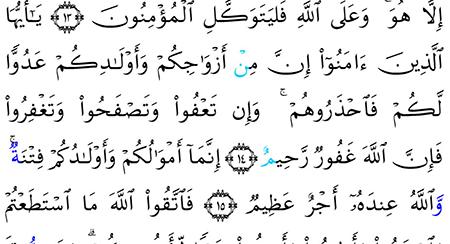 إِلَّا هُوَ ۚ وَعَلَى اللَّهِ فَلْيَتَوَكَّلِ الْمُؤْمِنُونَ ۝١٣ يَـٰٓأَيُّهَا
الَّذِينَ ءَامَنُوٓا۟ إِنَّ مِنْ أَزْوَٰجِكُمْ وَأَوْلَـٰدِكُمْ عَدُوًّا
لَّكُمْ فَٱحْذَرُوهُمْ ۚ وَإِن تَعْفُوا۟ وَتَصْفَحُوا۟ وَتَغْفِرُوا۟
فَإِنَّ اللَّهَ غَفُورٌ رَّحِيمٌ ۝١٤ إِنَّمَآ أَمْوَٰلُكُمْ وَأَوْلَـٰدُكُمْ فِتْنَةٌ ۚ
وَٱللَّهُ عِندَهُۥٓ أَجْرٌ عَظِيمٌ ۝١٥ فَٱتَّقُوا۟ اللَّهَ مَا ٱسْتَطَعْتُمْ